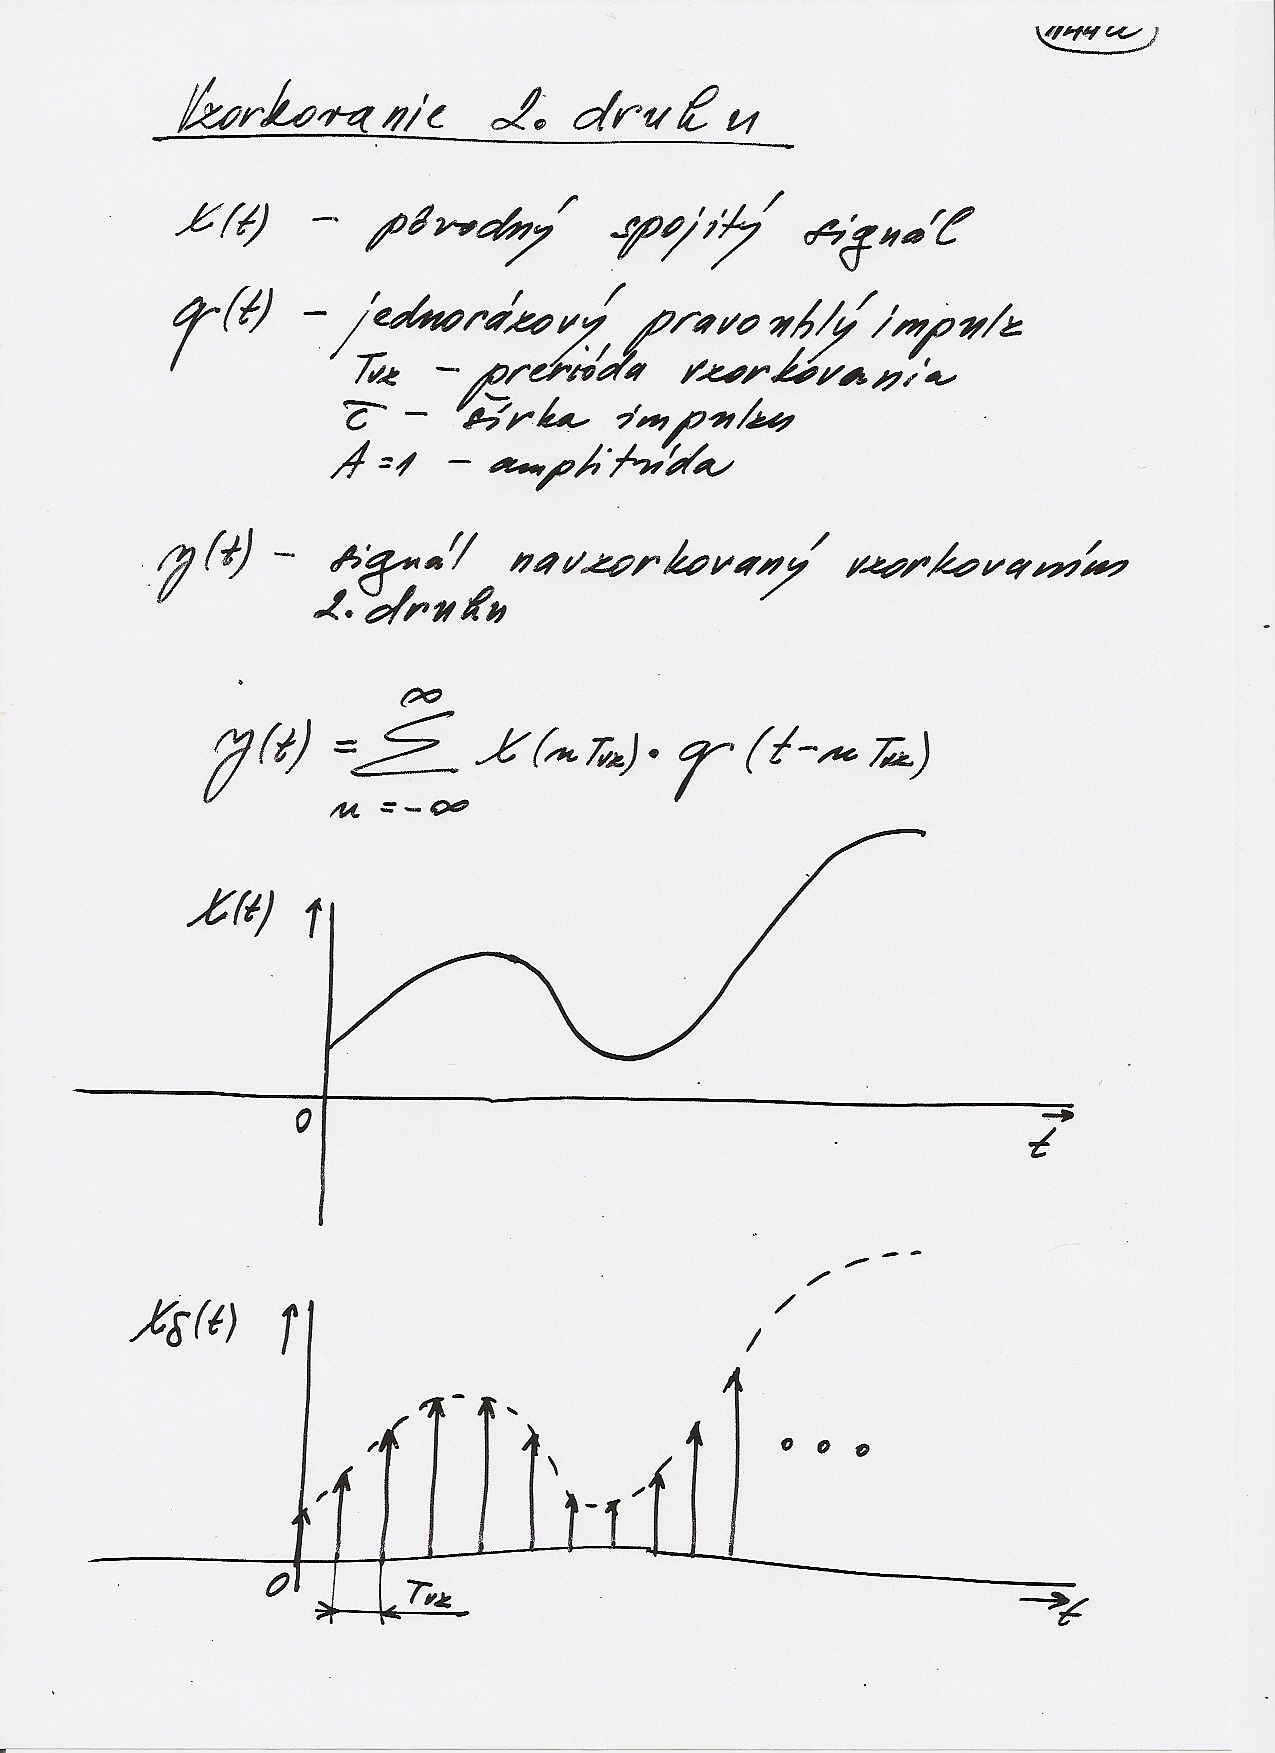 Vzorkovanie 2. druhu
x(t) – pôvodný spojitý signál
g(t) – jednorázový pravouhlý impulz
Tvz – prerióda vzorkovania
τ – šírka impulzu
A=1 – amplitúda
y(t) – signál navzorkovaný vzorkovaním
2. druhu
∞
y(t) = Σ x(nTvz)·g(t–nTvz)
n=-∞
x(t)
0
t
xδ(t)
0
Tvz
t